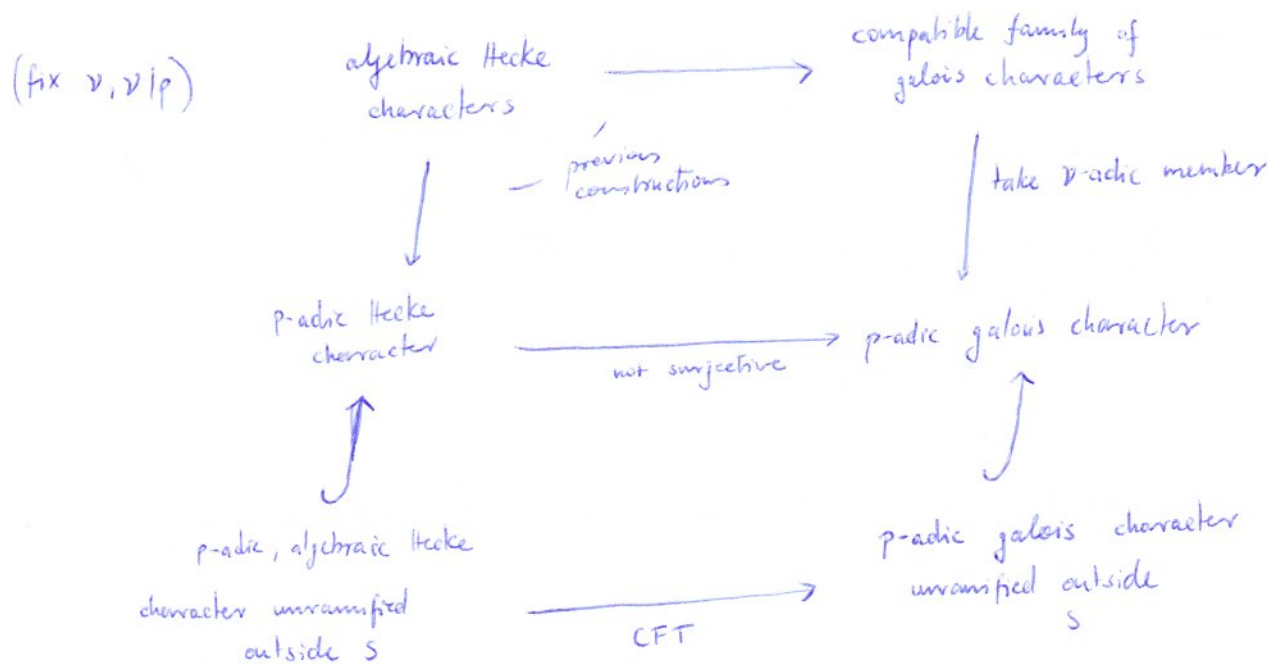 (fix ν, ν|p)
algebraic Hecke
characters
compatible family of
galois characters
previous
constructions
take ν-adic member
p-adic Hecke
character
not surjective
p-adic galois character
p-adic, algebraic Hecke
character unramified
outside S
CFT
p-adic galois character
unramified outside
S